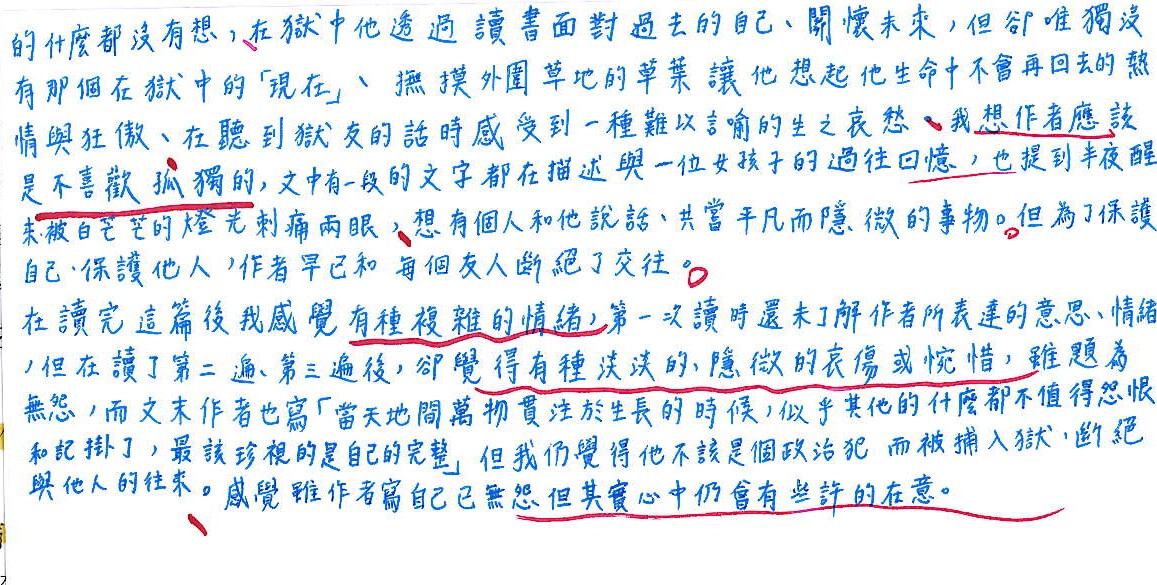 的什麼都沒有想，在獄中他透過讀書面對過去的自己、關懷未來，但卻唯獨沒
有那個在獄中的「現在」、撫摸外圍草地的草葉讓他想起他生命中不會再回去的熱
情與狂傲、在聽到獄友的話時感受到一種難以言喻的生之哀愁、我想作者應該
是不喜歡孤獨的，文中有一段的文字都在描述與一位女孩子的過往回憶，也提到半夜醒
來被白茫茫的燈光刺痛兩眼，想有個人和他說話、共嘗平凡而隱微的事物。但為了保護
自己、保護他人，作者早已和每個友人斷絕了交往。
在讀完這篇後我感覺有種複雜的情緒，第一次讀時還未了解作者所表達的意思、情緒
，但在讀了第二遍、第三遍後，卻覺得有種淡淡的、隱微的哀傷或惋惜，雖題為
無怨，而文末作者也寫「當天地間萬物貫注於生長的時候，似乎其他的什麼都不值得怨恨
和記掛了，最該珍視的是自己的完整」但我仍覺得他不該是個政治犯而被捕入獄，斷絕
與他人的往來。感覺雖作者寫自己已無怨但其實心中仍會有些許的在意。